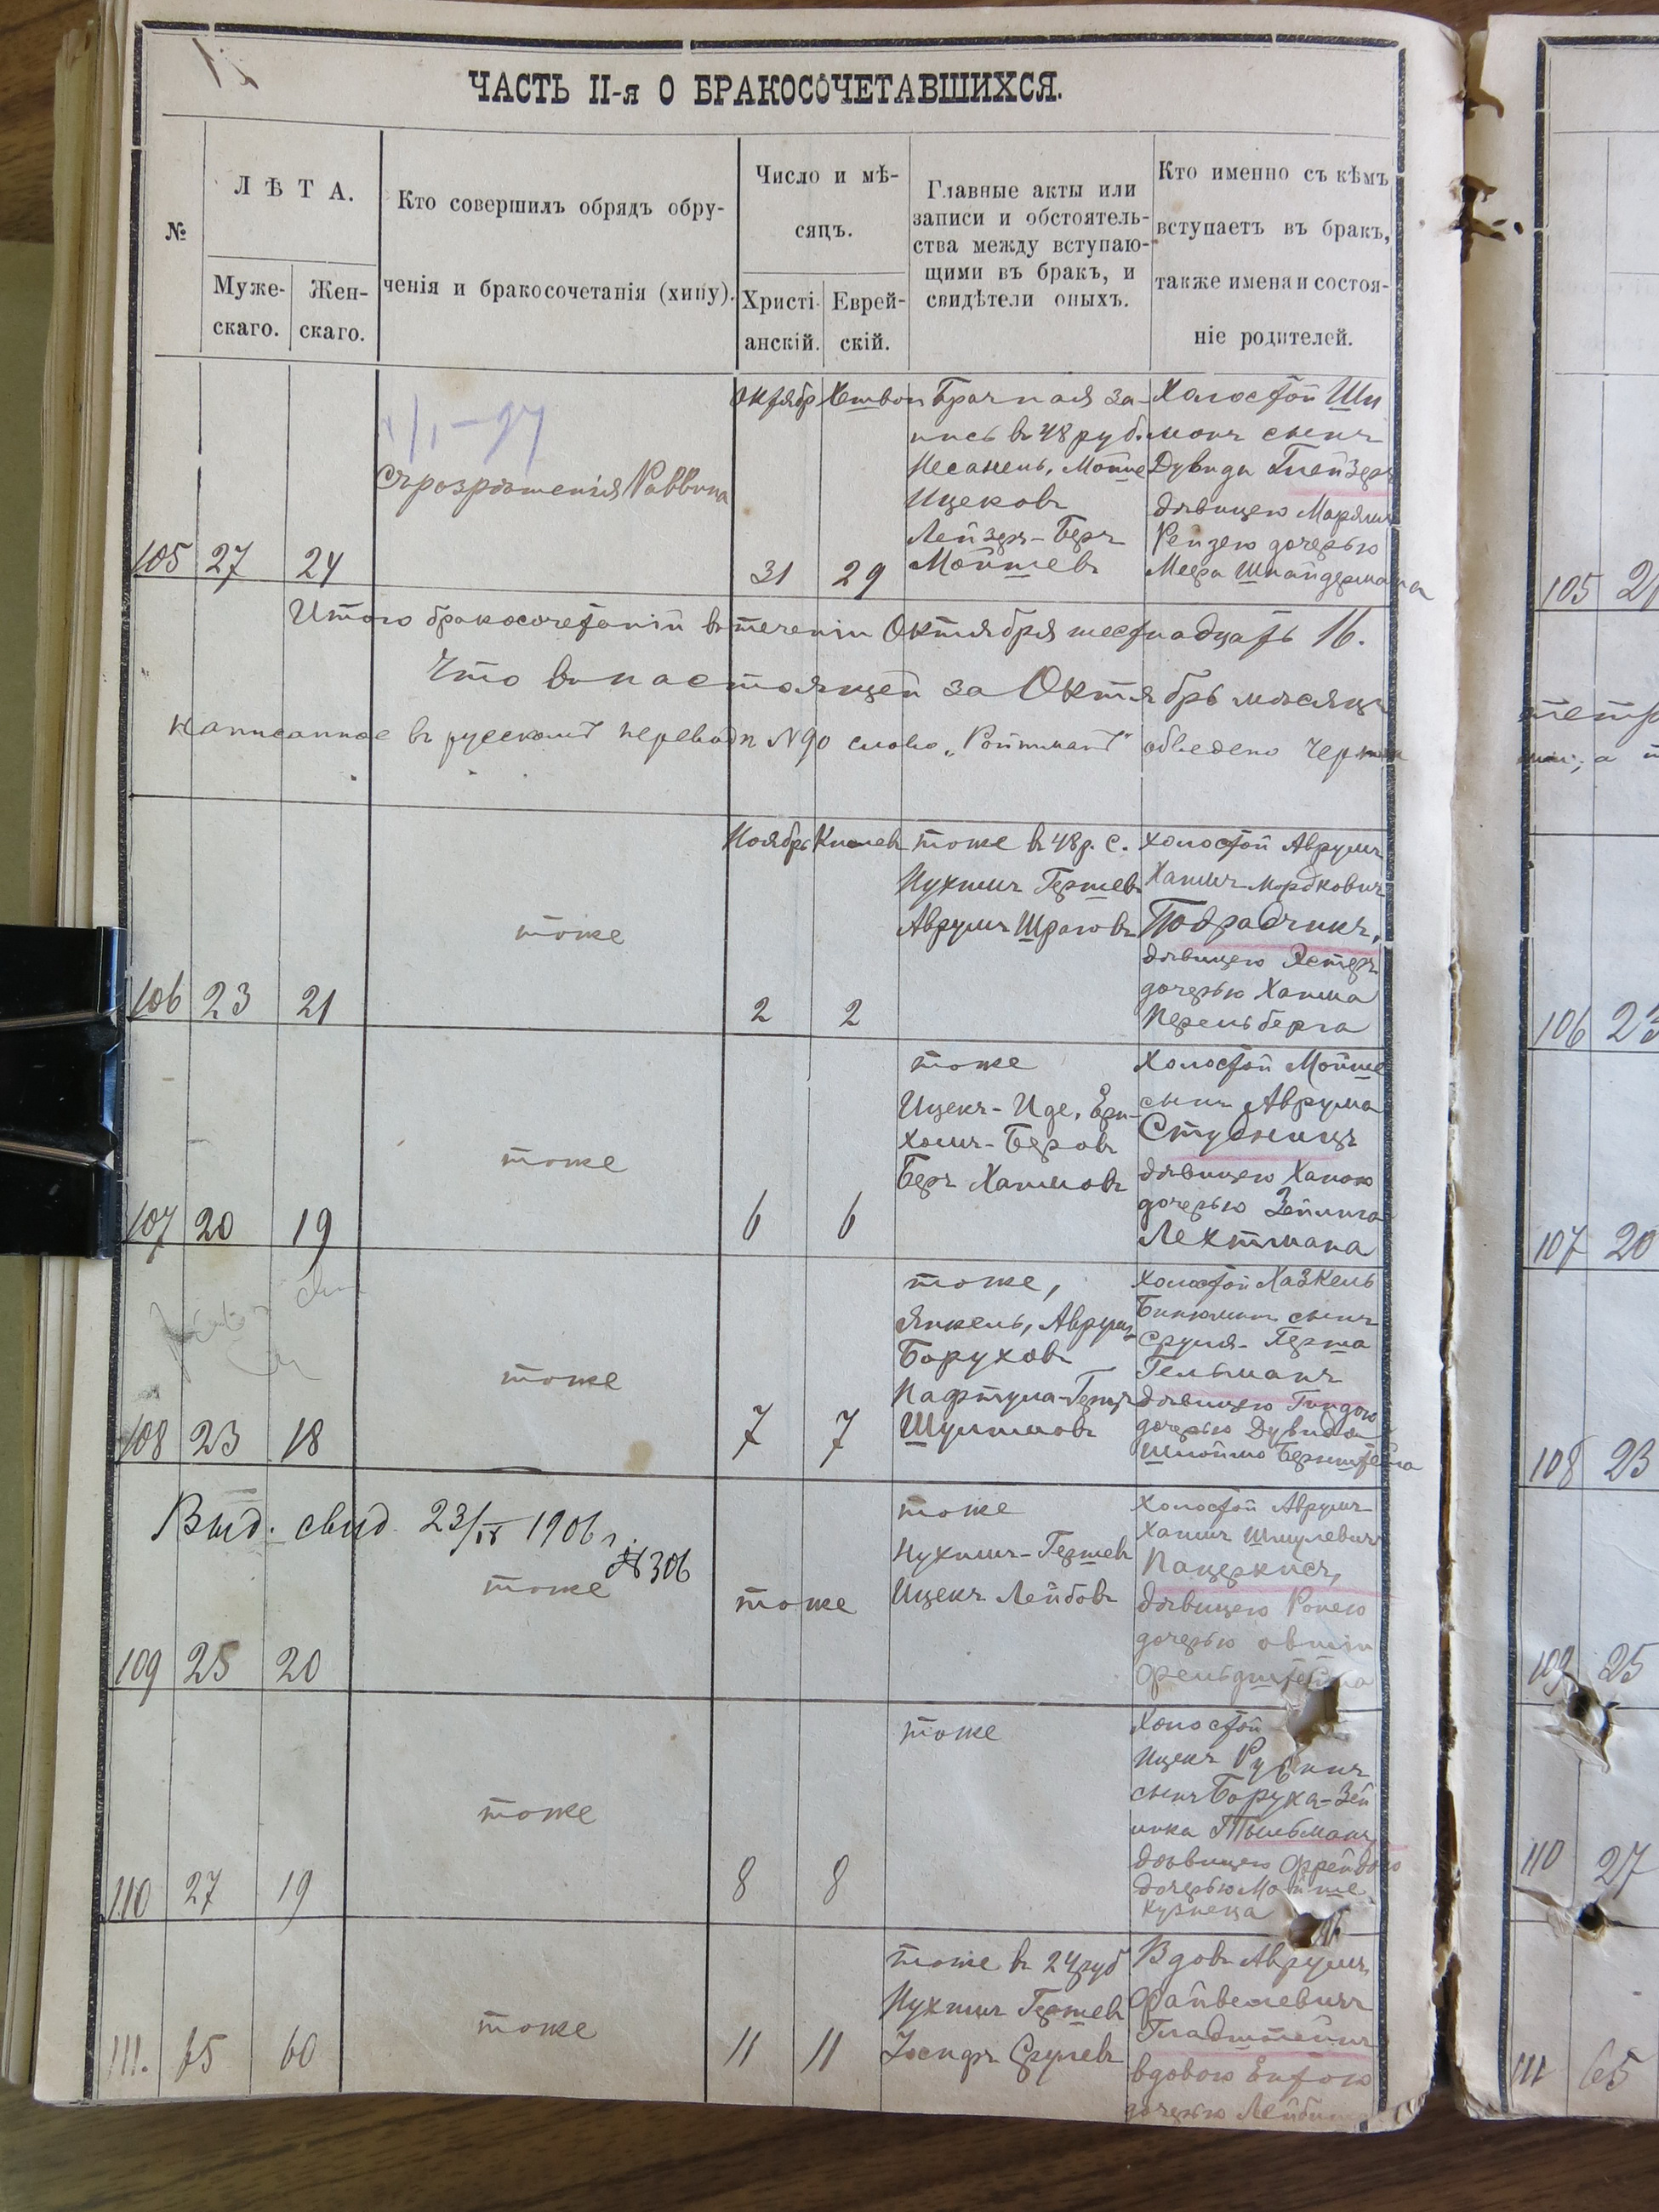 ЧАСТЬ II-я О БРАКОСОЧЕТАВШИХСЯ.
№
ЛѢТА.
Муже-
скаго.
Жен-
скаго.
Кто совершилъ обрядъ обру-
ченія и бракосочетанія (хипу).
Число и мѣ-
сяцъ.
Христі-
анскій.
Еврей-
скій.
Главные акты или
записи и обстоятель-
ства между вступаю-
щими въ бракъ, и
свидѣтели оныхъ.
Кто именно съ кѣмъ
вступаетъ въ бракъ,
также имена и состоя-
ніе родителей.
105
27
24
Съ разрѣшенія Раввина
Октябр
31
29
Брачная за-
пись въ 48 руб.
Мойше
Ицековъ
Лейзеръ-Беръ
Мойшевъ
Холостой Ши
монъ сынъ
Дувида Глейзеръ
дѣвицею Марьямъ
Рейзею дочерью
Меера Шнайдермана
Итого бракосочетаній въ теченіи Октября шестнадцать 16.
Что въ настоящей за Октябрь мѣсяцъ
написанное въ русскомъ переводѣ N 90 слово „Ройтманъ" обведено черн
106
23
21
тоже
Ноябрь
Кислевъ
2
2
тоже въ 48 р. с.
Нухимъ Гершевъ
Аврумъ Шраговъ
холостой Аврумъ
Хаимъ Мордковичъ
Подрадчикъ,
дѣвицею Эстеръ
дочерью Хаима
Перельберга
107
20
19
тоже
6
6
тоже
Ицекъ-Иде, Ери-
холъ-Беровъ
Беръ Хаимовъ
Холостой Мойше
сынъ Аврума
Студницъ
дѣвицею Ханою
дочерью Зейлига
Лехтмана
108
23
18
тоже
7
7
тоже,
Янкель, Аврумъ
Боруховъ
Нафтула-Герцъ
Шулимовъ
холостой Хазкель
Бинюминъ сынъ
Сруля-Герша
Гельманъ
дѣвицею Гиндою
дочерью Дувида
Шлоймо Бернштейна
Выд. свид. 23/IX 1906 г.
№ 306
109
25
20
тоже
тоже
тоже
Нухимъ-Гершевъ
Ицекъ Лейбовъ
холостой Аврумъ
Хаимъ Шмулевичъ
Пацеркисъ,
дѣвицею Ронею
дочерью Овшія
110
27
19
тоже
8
8
тоже
Холостой
Ицекъ Рувинъ
сынъ Боруха-Зей
лика Тельманъ
дѣвицею Фрейдою
дочерью Мойше
Кузнеца
111.
65
60
тоже
11
11
тоже въ 24 руб
Нухимъ Гершевъ
Іосифъ Срулевъ
Вдовъ Аврумъ
Файвелевичъ
Гладштейнъ
вдовою Ентою
дочерью
105
106
23
107
20
108
23
109
25
110
27
111
65